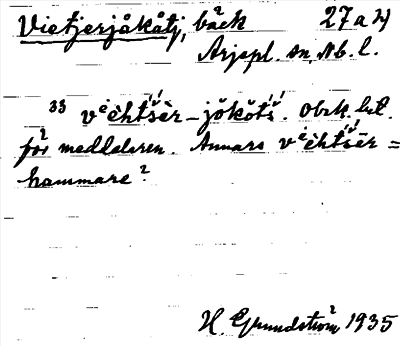 Vietjerjåkåtj, bäck 27 a 2)
Arjepl. sn, Nb. l.
33 vi̯èhtśēr-jǒkǒtś. Obek. bet.
för meddelaren. Annars vi̯èhtśēr =
hammare?
H. Grundström 1935